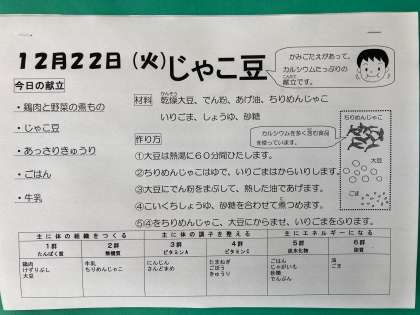 12月22日（火）じゃこ豆
かみごたえがあって、
カルシウムたっぷりの
こんだて
献立です。
今日の献立
・鶏肉と野菜の煮もの
・じゃこ豆
・あっさりきゅうり
・ごはん
・牛乳
かんそう
材料 乾燥大豆、でん粉、あげ油、ちりめんじゃこ
いりごま、しょうゆ、砂糖
カルシウムを多く含む食品
を使っています。
ちりめんじゃこ
大豆
ごま
作り方
①大豆は熱湯に60分間ひたします。
②ちりめんじゃこはゆで、いりごまはからいりします。
③大豆にでん粉をまぶして、熱した油であげます。
④こいくちしょうゆ、砂糖を合わせて煮つめます。
⑤④をちりめんじゃこ、大豆にからませ、いりごまをふります。
主に体の組織をつくる 主に体の調子を整える 主にエネルギーになる
1群 2群 3群 4群 5群 6群
たんぱく質 無機質 ビタミンA ビタミンC 炭水化物 脂質
鶏肉 牛乳 にんじん たまねぎ ごはん 油
けずりぶし ちりめんじゃこ さんどまめ ごぼう じゃがいも ごま
大豆 きゅうり 砂糖
でんぷん